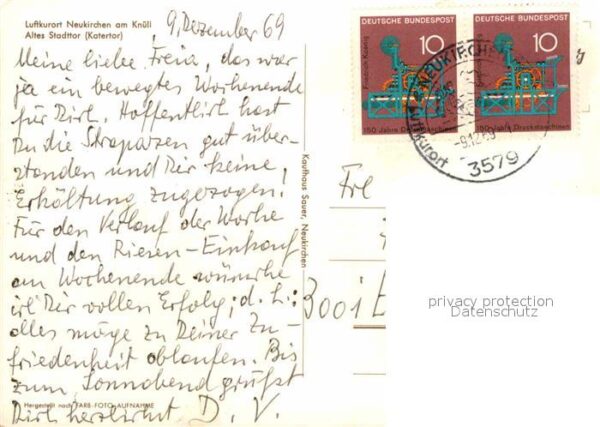 Luftkurort Neukirchen am Knüll
Altes Stadttor (Katertor)
9. Dezember 69
Meine liebe Freia, das war
ja ein bewegtes Wochenende
für Dich. Hoffentlich hast
Du die Strapazen gut über-
standen und Dir keine
Erkältung zugezogen.
Für den Verlauf der Woche
und den Riesen-Einkauf
am Wochenende wünsche
ich Dir vollen Erfolg, d. h.:
alles möge zu Deiner Zu-
friedenheit ablaufen. Bis
zum Sonnabend grüßt
Dich herzlichst D. V.
Hergestellt nach FARB-FOTO-AUFNAHME
Kaufhaus Sauer, Neukirchen
DEUTSCHE BUNDESPOST
10
Friedrich Koenig
150 Jahre Druckmaschinen
DEUTSCHE BUNDESPOST
10
150 Jahre Druckmaschinen
NEUKIRCHEN
-9.12.69
3579
Luftkurort
Frl
3001
privacy protection
Datenschutz